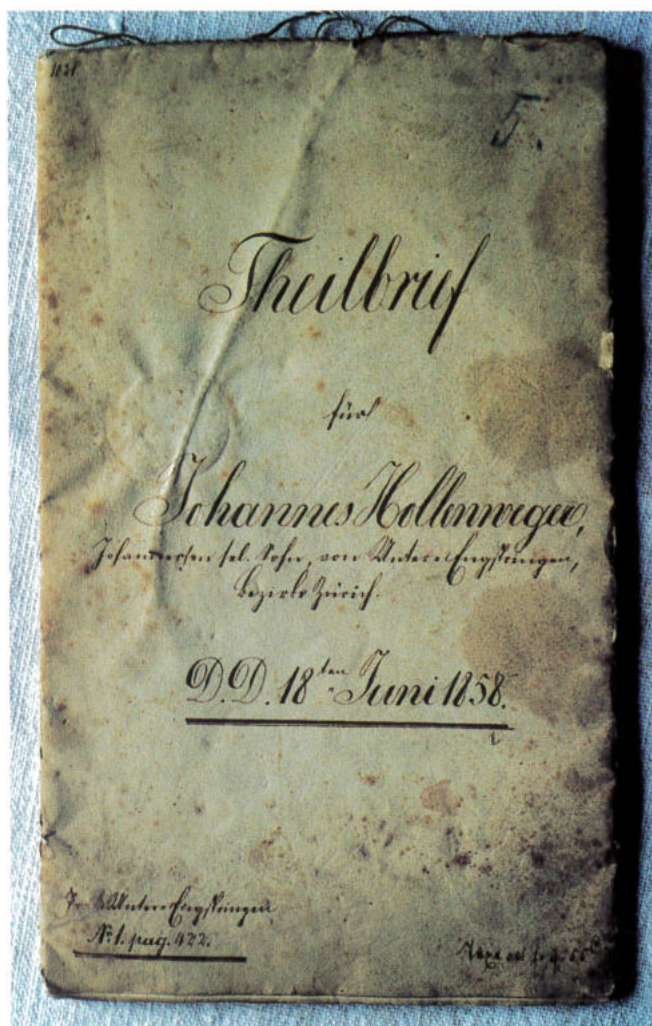 1021
5.
Theilbrief
für
Johannes Hollenweger,
Johannessen sel. Sohn, von Unter-Engstringen,
Bezirks Zürich.
D.D. 18ten Juni 1858.
Unter-Engstringen
No. 1. pag. 422.